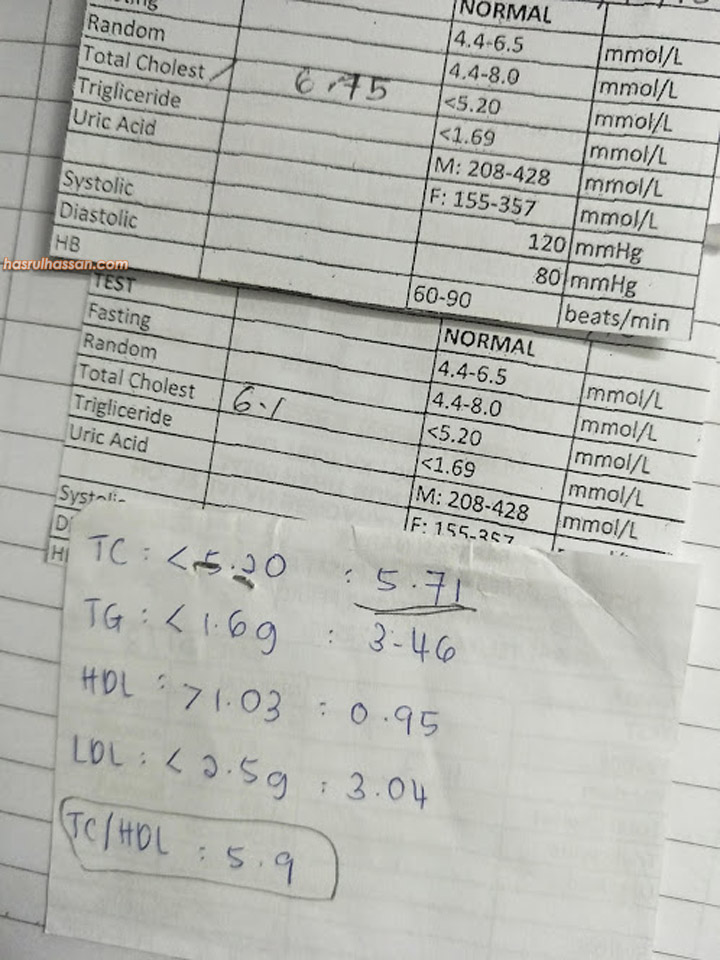 NORMAL
Random 4.4-6.5 mmol/L
Total Cholest 6.75 4.4-8.0 mmol/L
Trigliceride <5.20 mmol/L
Uric Acid <1.69 mmol/L
M: 208-428 mmol/L
Systolic F: 155-357 mmol/L
Diastolic 120 mmHg
HB 80 mmHg
60-90 beats/min
hasrulhassan.com
TEST NORMAL
Fasting 4.4-6.5 mmol/L
Random 4.4-8.0 mmol/L
Total Cholest 6.1 <5.20 mmol/L
Trigliceride <1.69 mmol/L
Uric Acid M: 208-428 mmol/L
F: 155-357
TC : < 5.20 : 5.71
TG : < 1.69 : 3.46
HDL : >1.03 : 0.95
LDL : < 2.59 : 3.04
TC/HDL : 5.9